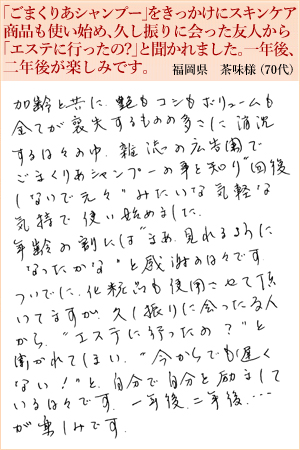 「ごまくりあシャンプー」をきっかけにスキンケア
商品も使い始め、久し振りに会った友人から
「エステに行ったの?」と聞かれました。一年後、
二年後が楽しみです。 福岡県 茶味様(70代)
加齢と共に、艶もコシもボリュームも
全てが喪失するものの多さに消沈
する日々の中、雑誌の広告で
ごまくりあシャンプーの事を知り"回復
しないで元々"みたいな気軽な
気持で使い始めました。
年齢の割には"まあ、見れるように
なったかな"と感謝の日々です
ついでに、化粧品も使用させて頂
いてますが、久し振りに会った友人
から、"エステに行ったの?"と
聞かれてしまい、"今からでも遅く
ない!"と、自分で自分を励まして
いる日々です。一年後、二年後、…
が楽しみです。